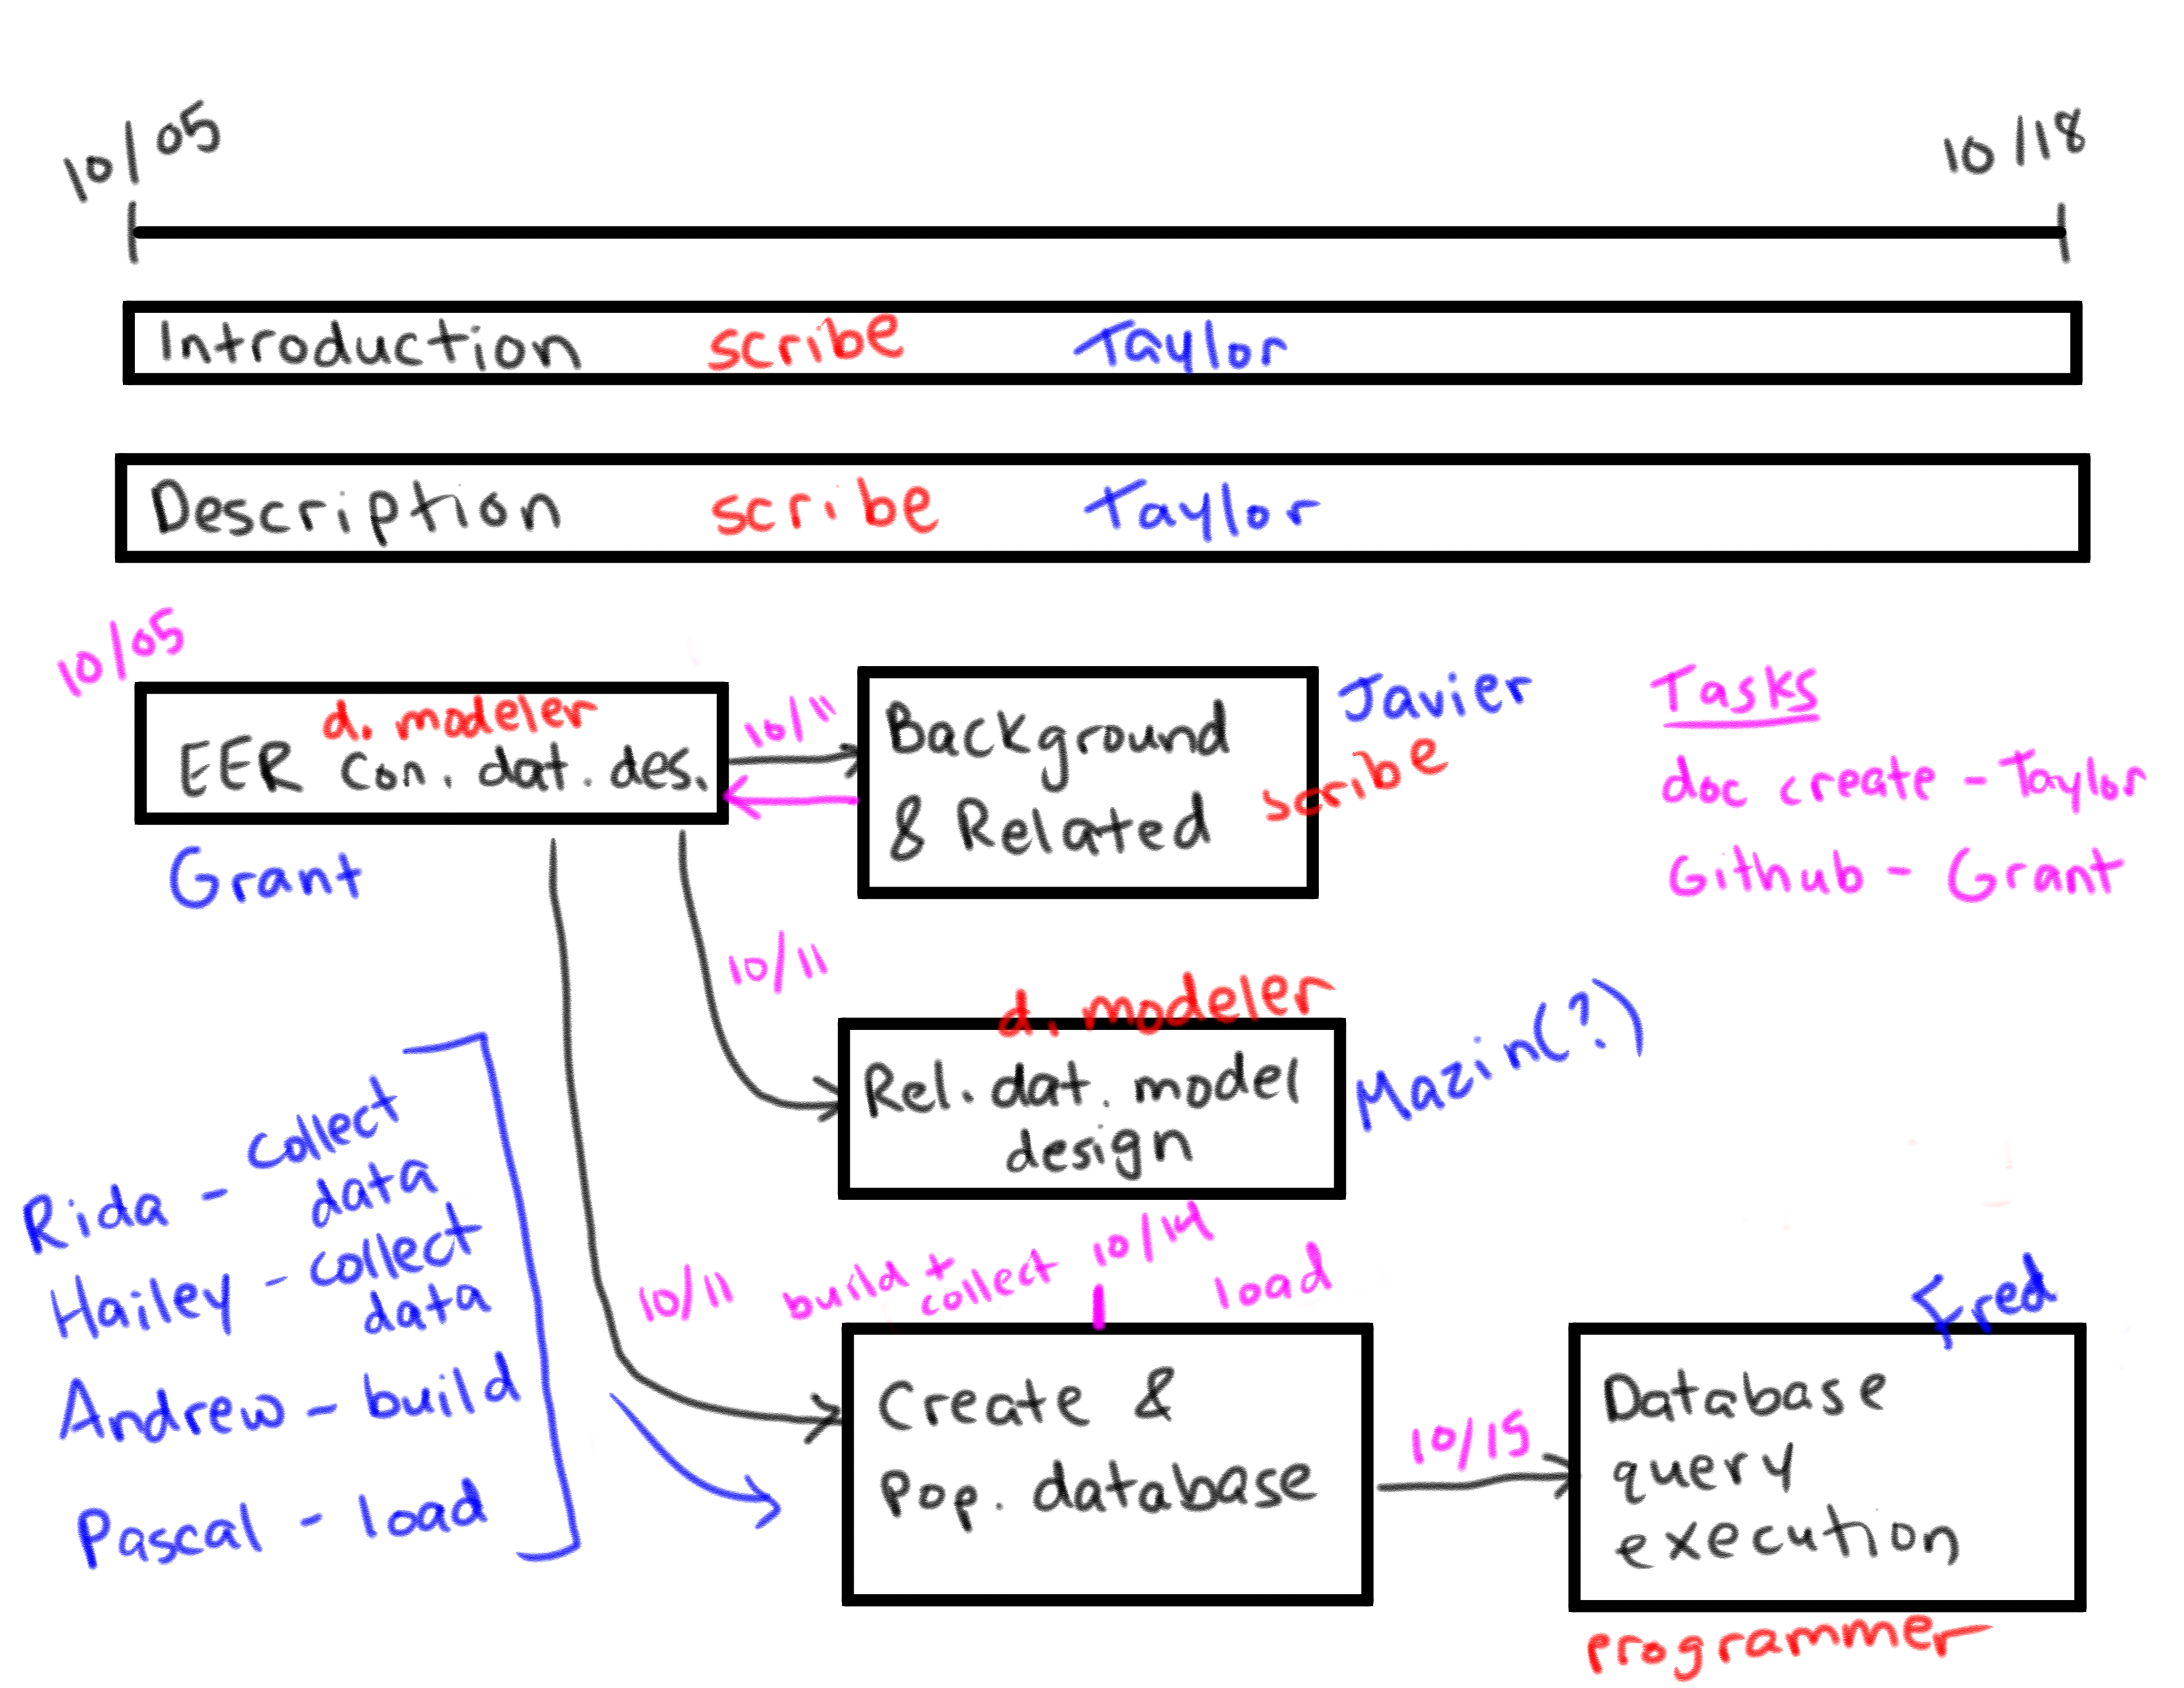 10/05
10/18
Introduction scribe Taylor
Description scribe Taylor
10/05
d. modeler
EER con. dat. des.
Grant
10/11
Background
& Related
Javier
scribe
Tasks
doc create - Taylor
Github - Grant
10/11
d. modeler
Rel. dat. model
design
Mazin(?)
Rida - collect
data
Hailey - collect
data
Andrew - build
Pascal - load
10/11 build + collect 10/14 load
Create &
Pop. database
10/15
Fred
Database
query
execution
programmer